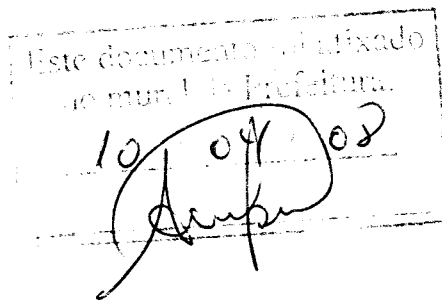 Este documento foi afixado
no mural da Prefeitura.
10 04 08